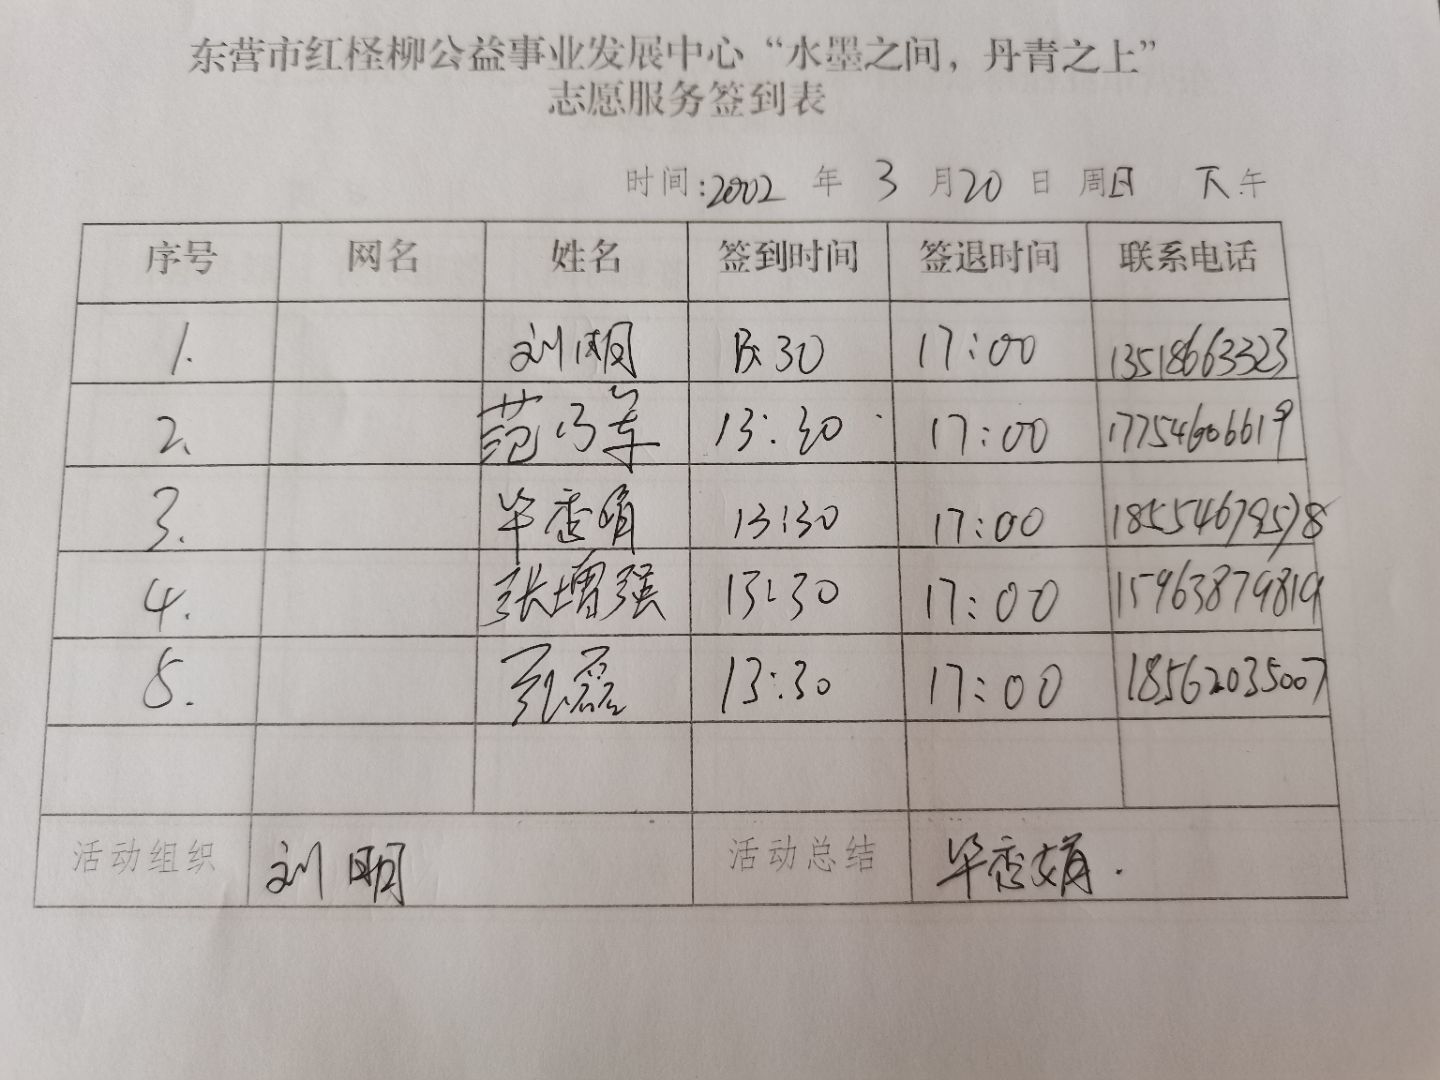 东营市红柽柳公益事业发展中心“水墨之间，丹青之上”
志愿服务签到表
时间:2002 年 3 月20 日 周日 下午
序号 网名 姓名 签到时间 签退时间 联系电话
1. 刘明 13:30 17:00 13518663323
2. 范 13:30 17:00 17754606619
3. 毕秀娟 13:30 17:00
4. 张增强 13:30 17:00 15963879819
5. 孔磊 13:30 17:00 18562035007
活动组织 刘明 活动总结 毕秀娟.